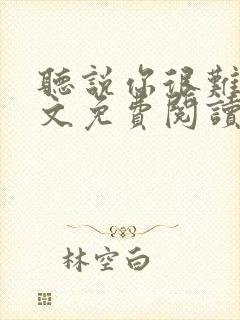 聽說你很難
文免費閱讀
林空白